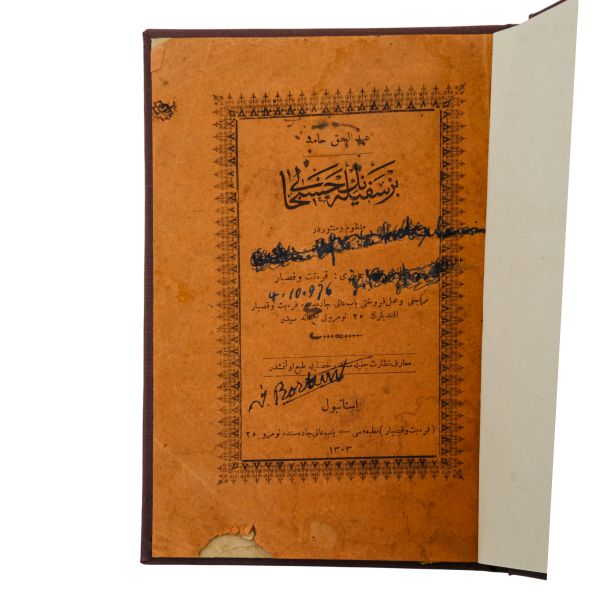 عبد الحق حامد
بر سفیله نك حسبحالی
منظوم و منثوردر
: قره بت و قصبار
4.10.976
مركزی و محل فروختی باب عالی جاده سنده قره بت و قصبار
افندیلرك ٢٥ نومرولی كتبخانه سیدر
معارف نظارت جلیله سنك رخصتیله طبع اولنمشدر
استانبول
(قره بت و قصبار) مطبعه سی — باب عالی جاده سنده نومرو ٢٥
١٣٠٣